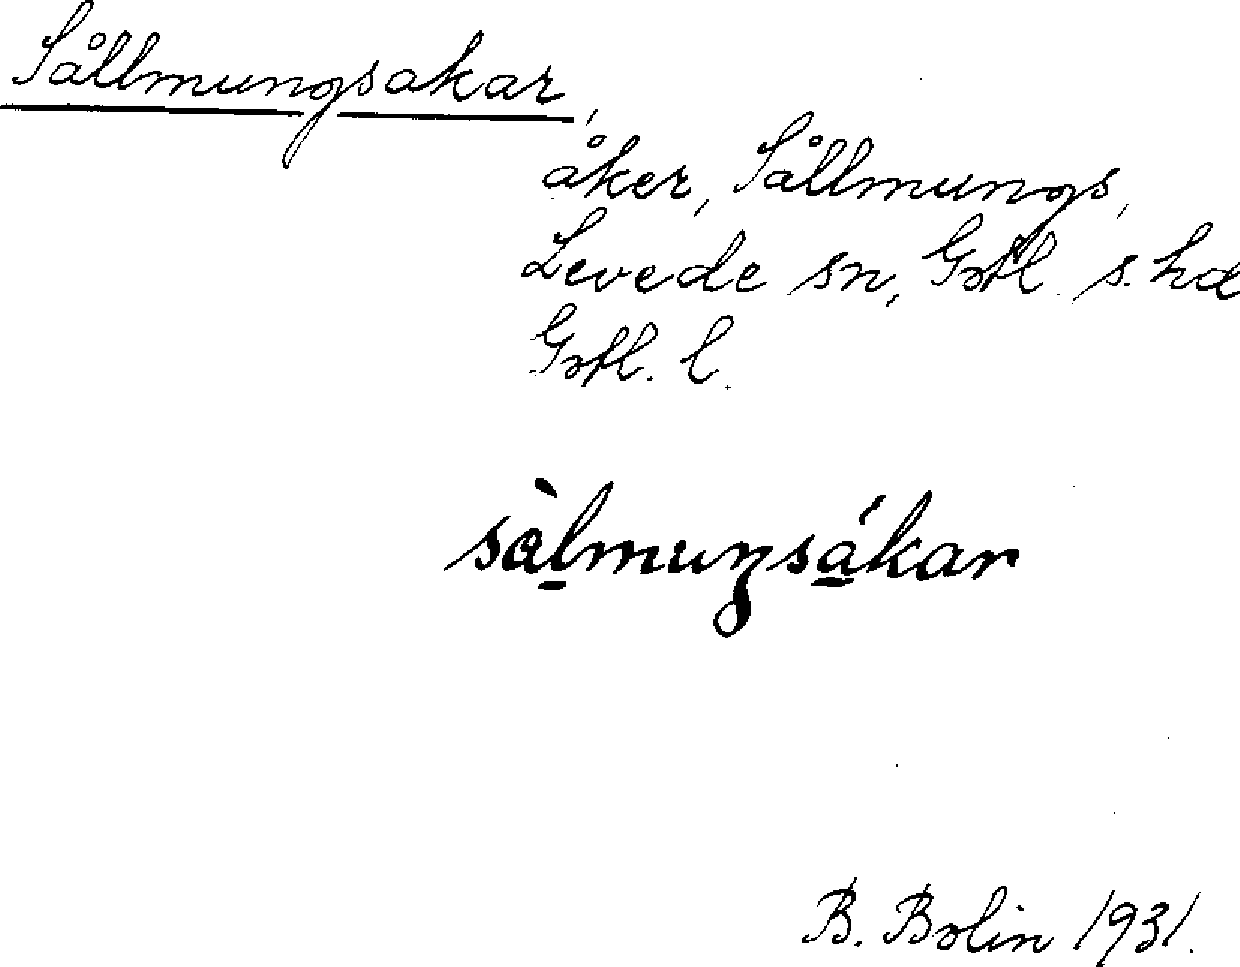 Sållmungsakar,
åker, Sållmungs,
Levede sn, Gotl. s. hd
Gotl. l.
sàlmuŋsákar
B. Bolin 1931.